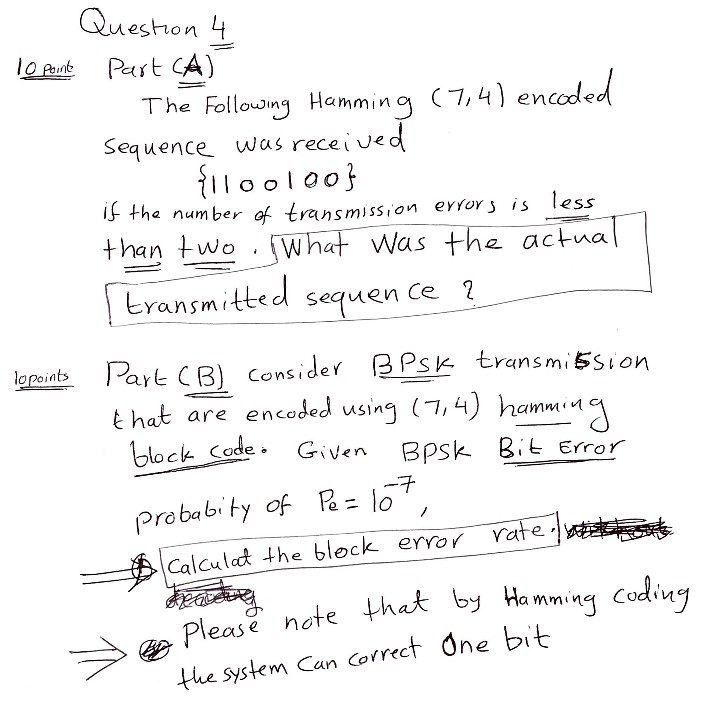 Question 4
10 point Part (A)
The Following Hamming (7,4) encoded
sequence was received
{1100100}
if the number of transmission errors is less
than two. What was the actual
transmitted sequence ?
10points Part (B) consider BPSK transmission
that are encoded using (7,4) hamming
block code. Given BPSK Bit Error
probabity of Pe = 10^-7,
Calculat the block error rate.
Please note that by Hamming coding
the system can correct One bit